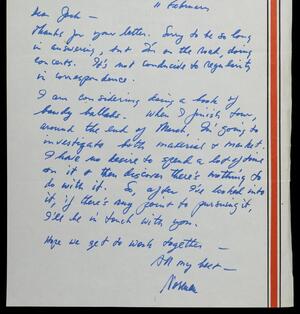 11 February
Dear Josh —
Thanks for your letter. Sorry to be so long
in answering, but I'm on the road, doing
concerts. It's not conducive to regularity
in correspondence.
I am considering doing a book of
bawdy ballads. When I finish tour,
around the end of March, I'm going to
investigate both material & market.
I have no desire to spend a lot of time
on it & then discover there's nothing to
do with it. So, after I've looked into
it, if there's any point to pursuing it,
I'll be in touch with you.
Hope we get to work together —
All my best —